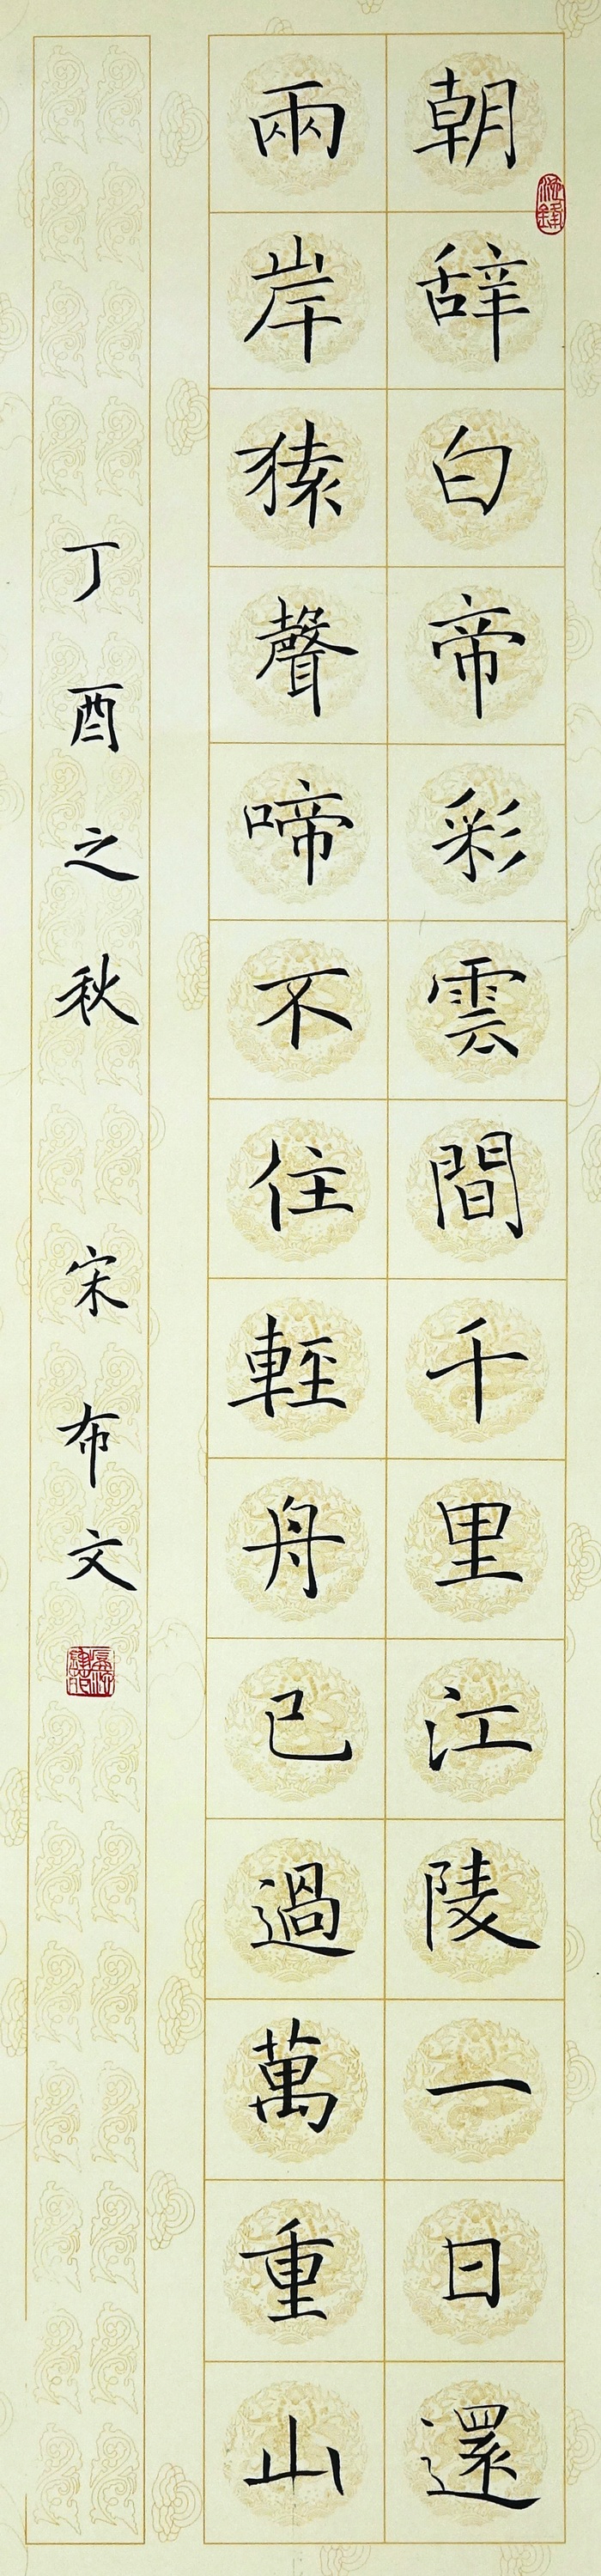 朝辞白帝彩雲間千里江陵一日還
兩岸猿聲啼不住輕舟已過萬重山
丁酉之秋 宋布文